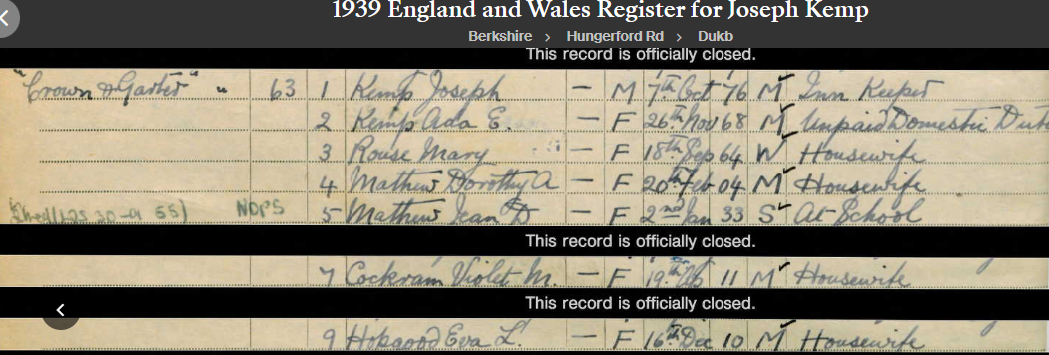 1939 England and Wales Register for Joseph Kemp
Berkshire > Hungerford Rd > Dukb
This record is officially closed.
"Crown & Garter" " 63 1 Kemp Joseph — M 7th Oct 76 M Inn Keeper
2 Kemp Ada E. — F 26th Nov 68 M Unpaid Domestic Dut
3 Rouse Mary — F 18th Sep 64 W Housewife
4 Mathew Dorothy A — F 20th Feb 04 M Housewife
NDPS 5 Mathew Jean D — F 2nd Jan 33 S At School
This record is officially closed.
7 Cockram Violet M. — F 19th 11 M Housewife
This record is officially closed.
9 Hobgood Eva L. — F 16th Dec 10 M Housewife